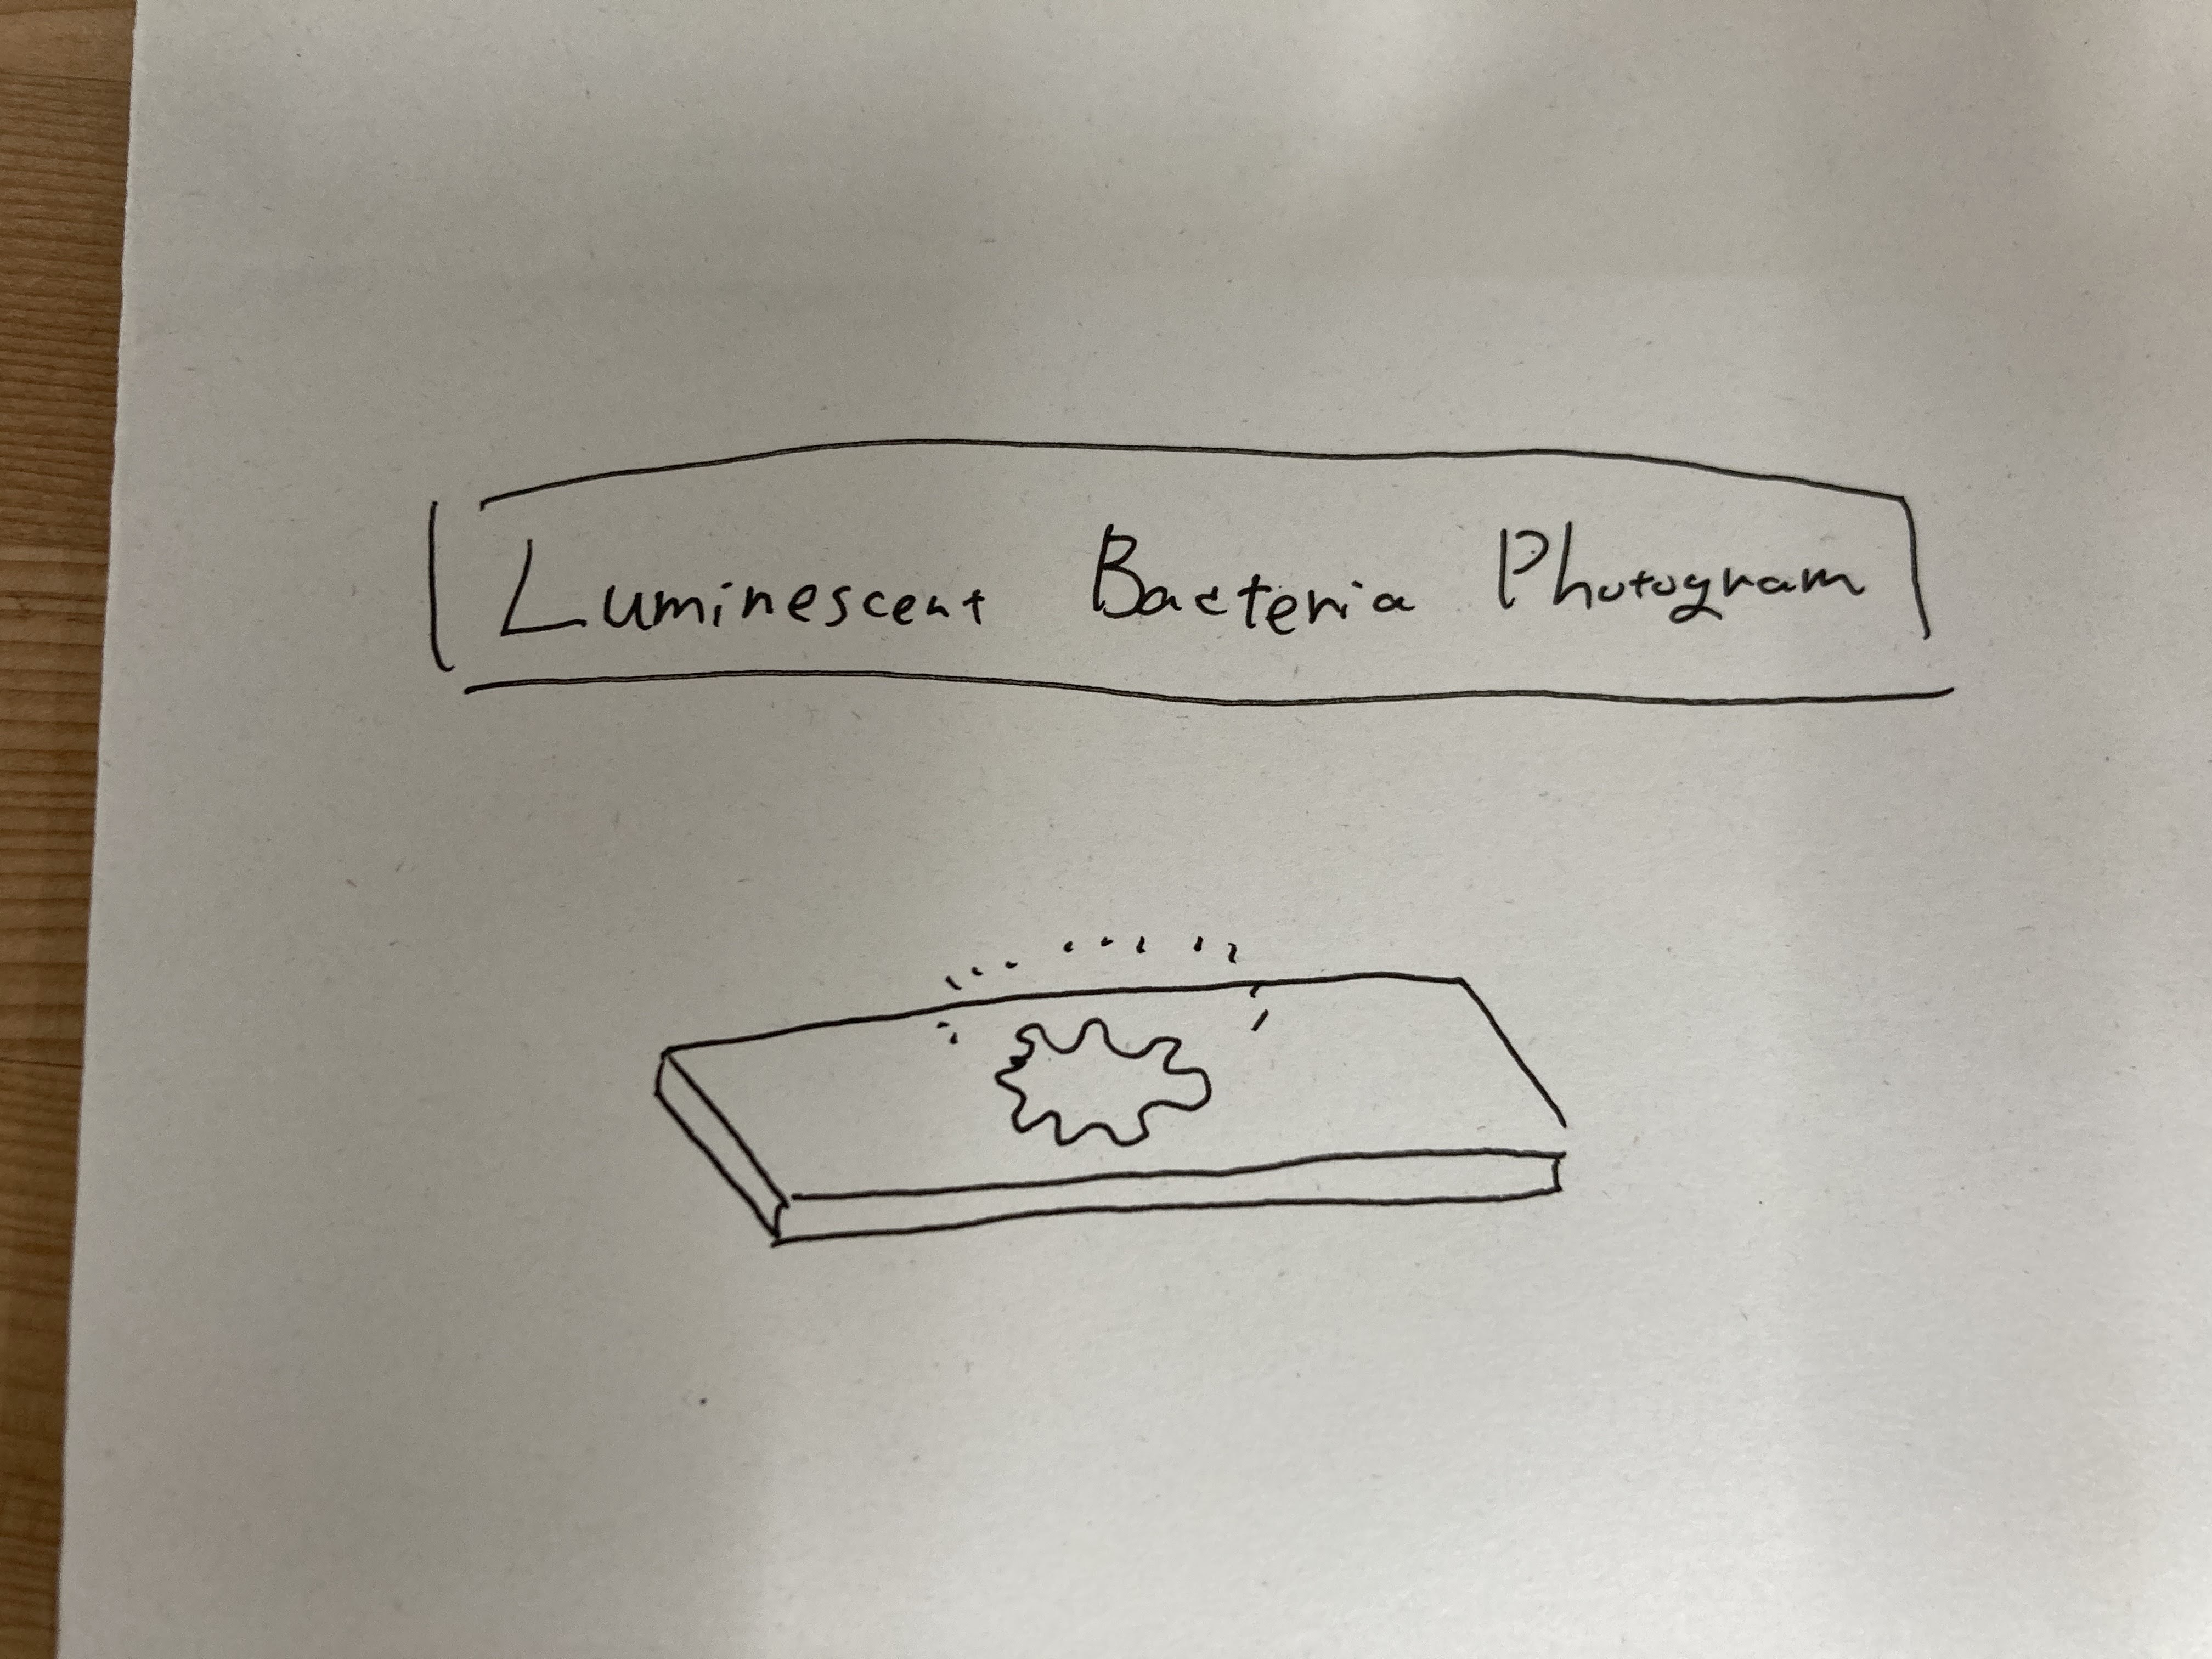 Luminescent Bacteria Photogram